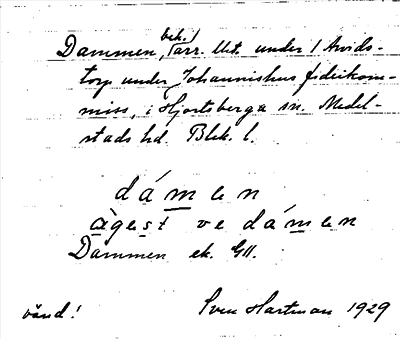 Dammen, bek.! (arr. lht. under) Arvids-
torp under Johannishus fideikom-
miss, i Hjortsberga sn. Medel-
stads hd. Blek. l.
dámen
àgest ve dámen
Dammen ek. GII.
vänd! Sven Hartman 1929